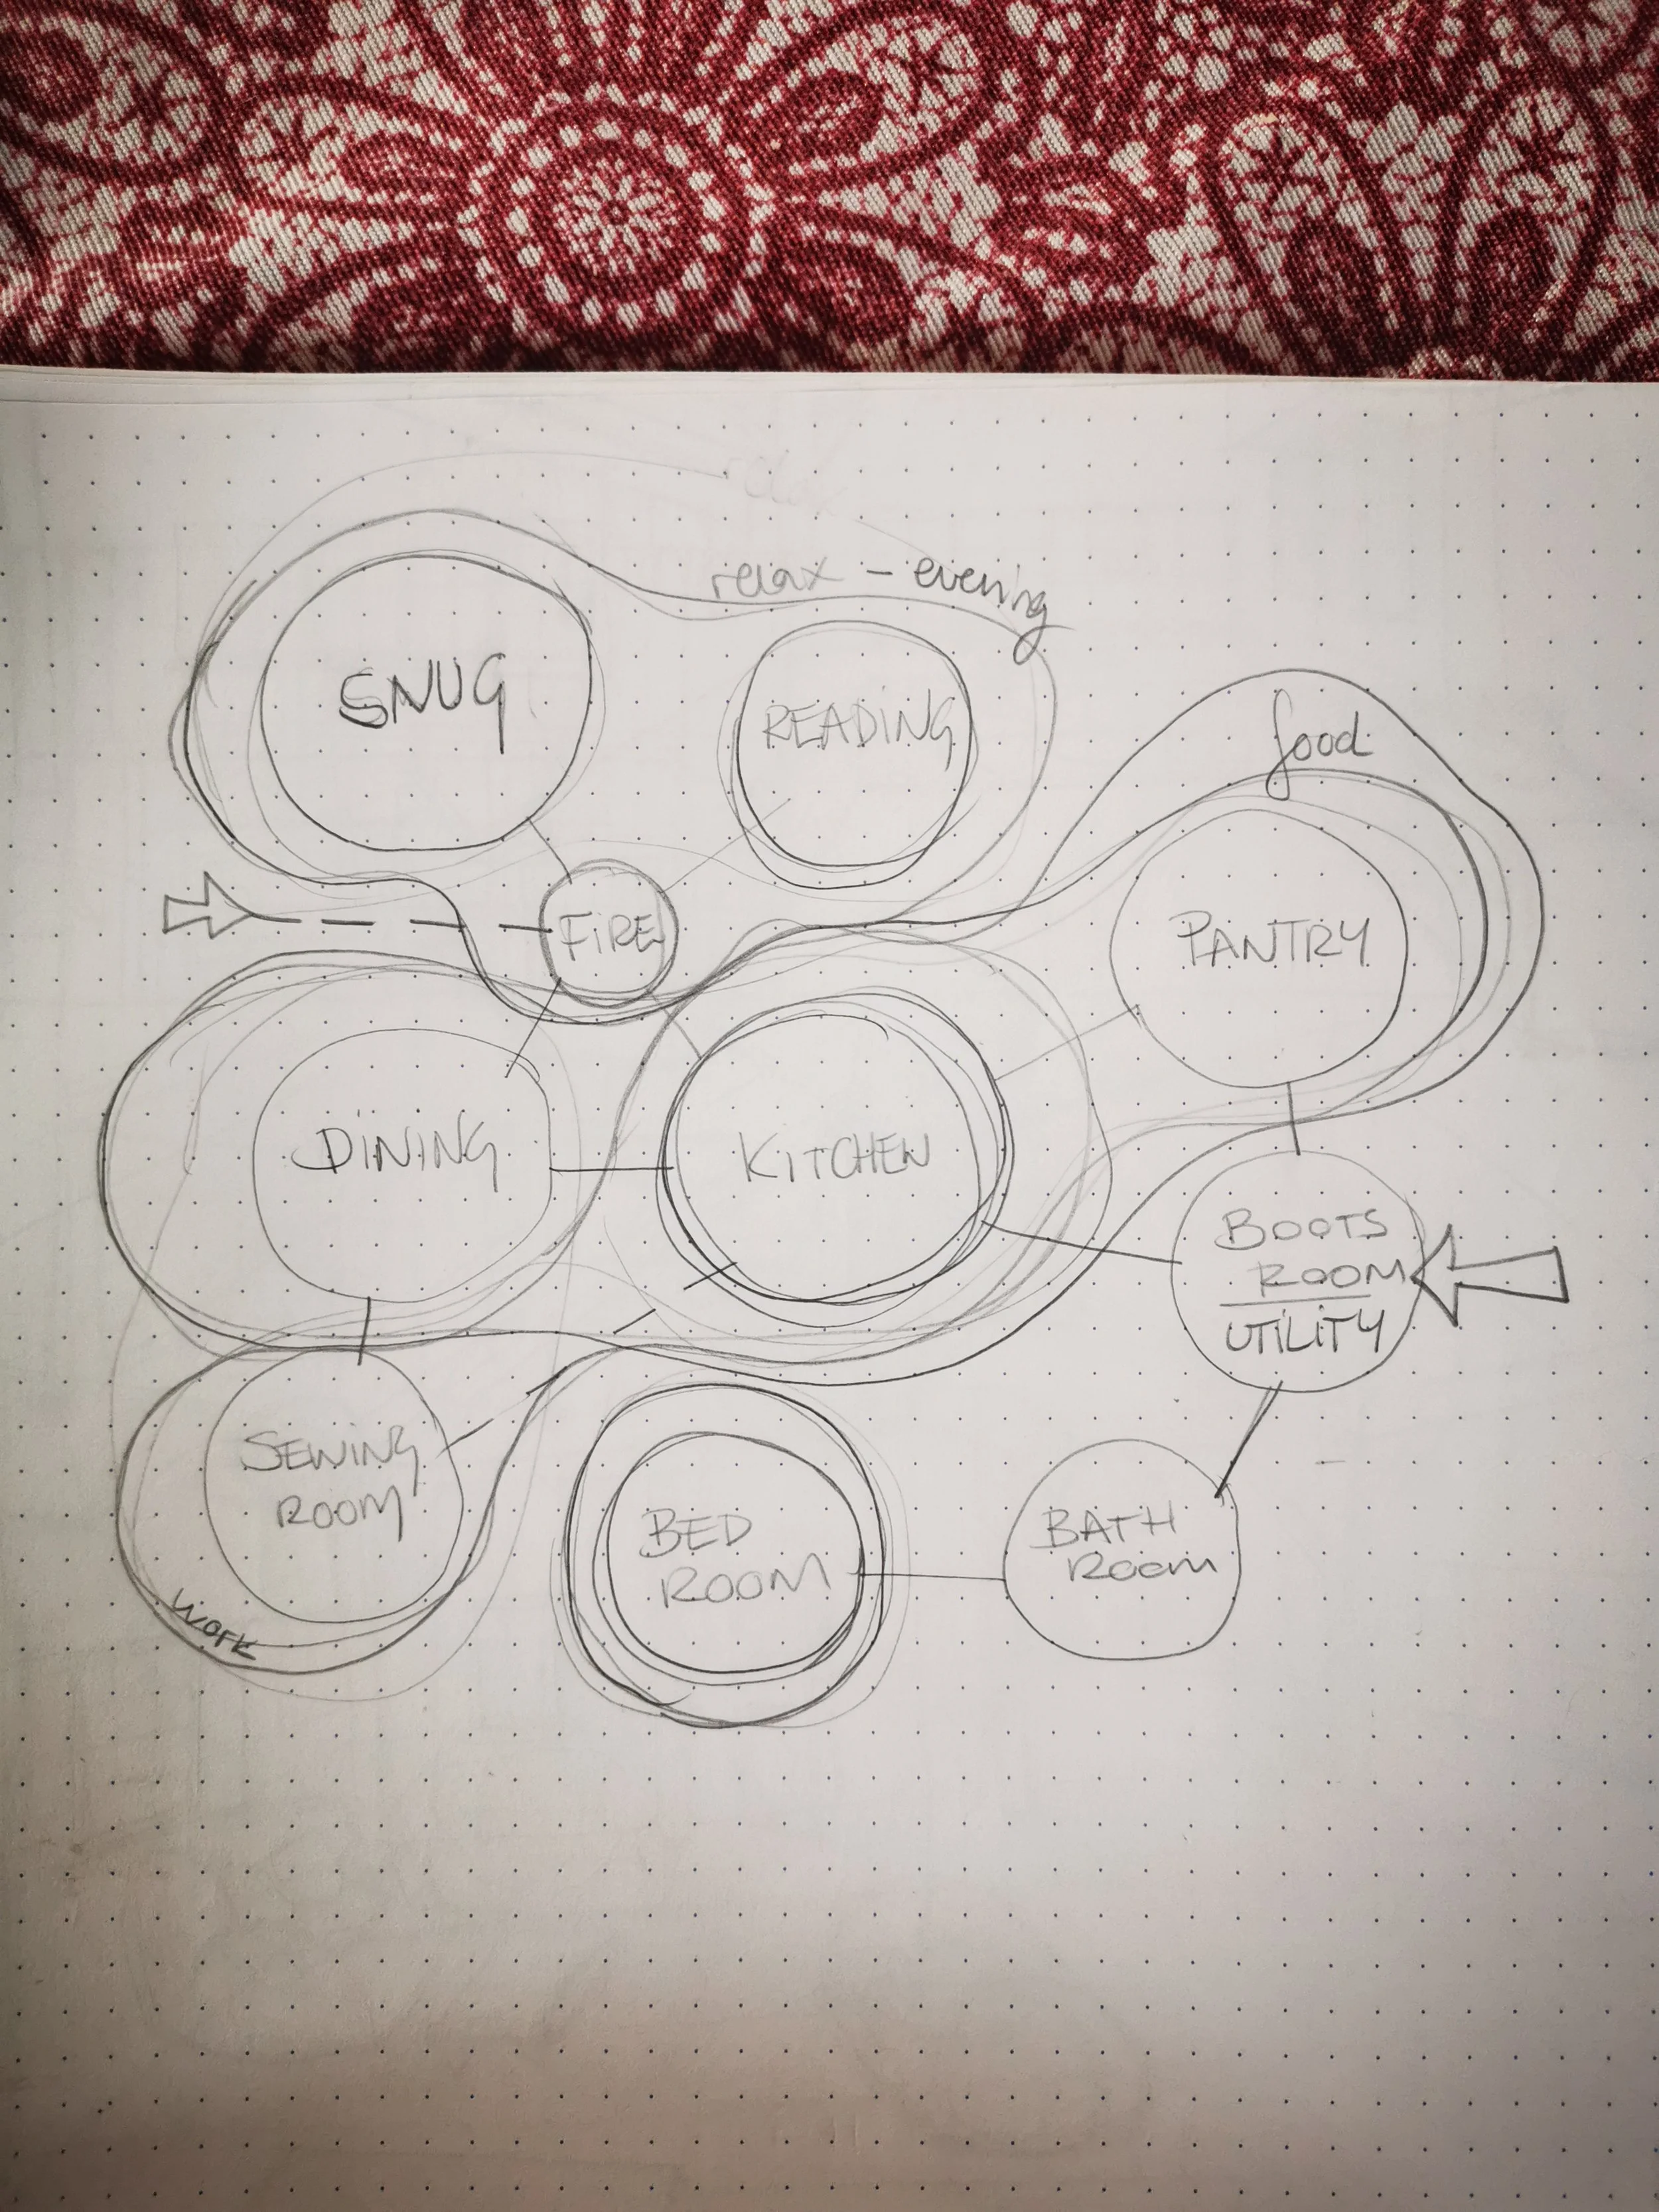 relax – evening
SNUG
READING
food
FIRE
PANTRY
DINING
KITCHEN
BOOTS
ROOM
UTILITY
SEWING
ROOM
BED
ROOM
BATH
Room
work